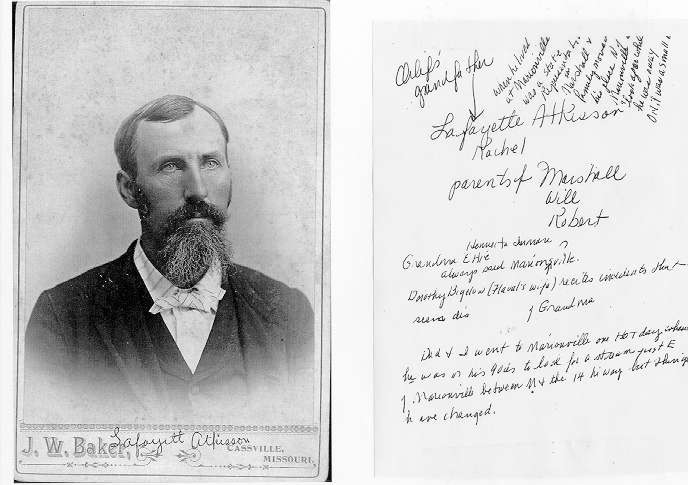 J. W. Baker,
Lafayett Atkisson
CASSVILLE,
MISSOURI.
grandfather
when he lived
at Marionville
was a state
Marshall &
family moved
his place
Marionville
look after while
he was away
it was a small
Lafayette Atkisson
Rachel
parents of Marshall
Will
Robert
Grandma Effie
always said Marionville.
Dorothy Bigelow (Haval's wife) recites incidents that
Grandma
Dad & I went to Marionville one hot day when
he was in his 90s to look for a stream just E
of Marionville between & the 14 hiway but things
have changed.